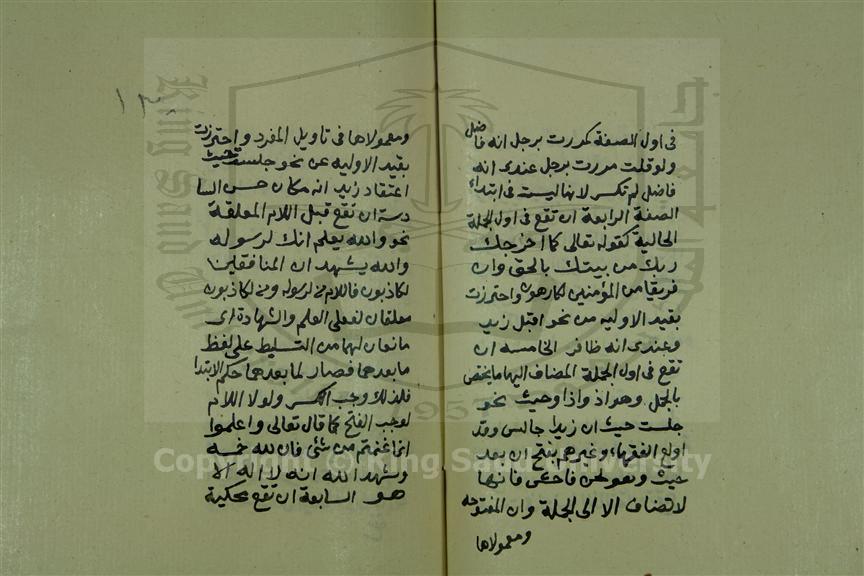 في اول الصفة كمررت برجل انه فاضل
ولو قلت مررت برجل عندى انه
فاضل لم تكسر لانها ليست في ابتداء
الصفة الرابعة ان تقع في اول الجملة
الحالية كقوله تعالى كما اخرجك
ربك من بيتك بالحق وان
فريقا من المؤمنين لكارهون واحترزت
بقيد الاوليه من نحو اقبل زيد
وعندى انه ظافر الخامسه ان
تقع في اول الجملة المضاف اليها ما يختص
بالجمل وهو اذ واذا وحيث نحو
جلست حيث ان زيدا جالس وقد
اولع الفقهاء وغيرهم بفتح ان بعد
حيث وهو لحن فاحش فانها
لا تضاف الا الى الجملة وان المفتوحه
ومعمولاها
١٣
ومعمولاها في تاويل المفرد واحترزت
بقيد الاوليه عن نحو جلست حيث
اعتقاد زيد انه مكان حسن السا
دسة ان تقع قبل اللام المعلقة
نحو والله يعلم انك لرسوله
والله يشهد ان المنافقين
لكاذبون فاللام في لرسوله وفي لكاذبون
معلقان لفعلى العلم والشهادة اى
مانعان لهما من التسليط على لفظ
ما بعدهما فصار لما بعدهما حكم الابتدا
فلذلك وجب الكسر ولولا اللام
لوجب الفتح كما قال تعالى واعلموا
انما غنمتم من شئ فان لله خمسه
وشهد الله انه لا اله الا
هو السابعة ان تقع محكية
King Saud University
1957
Copyright © King Saud University